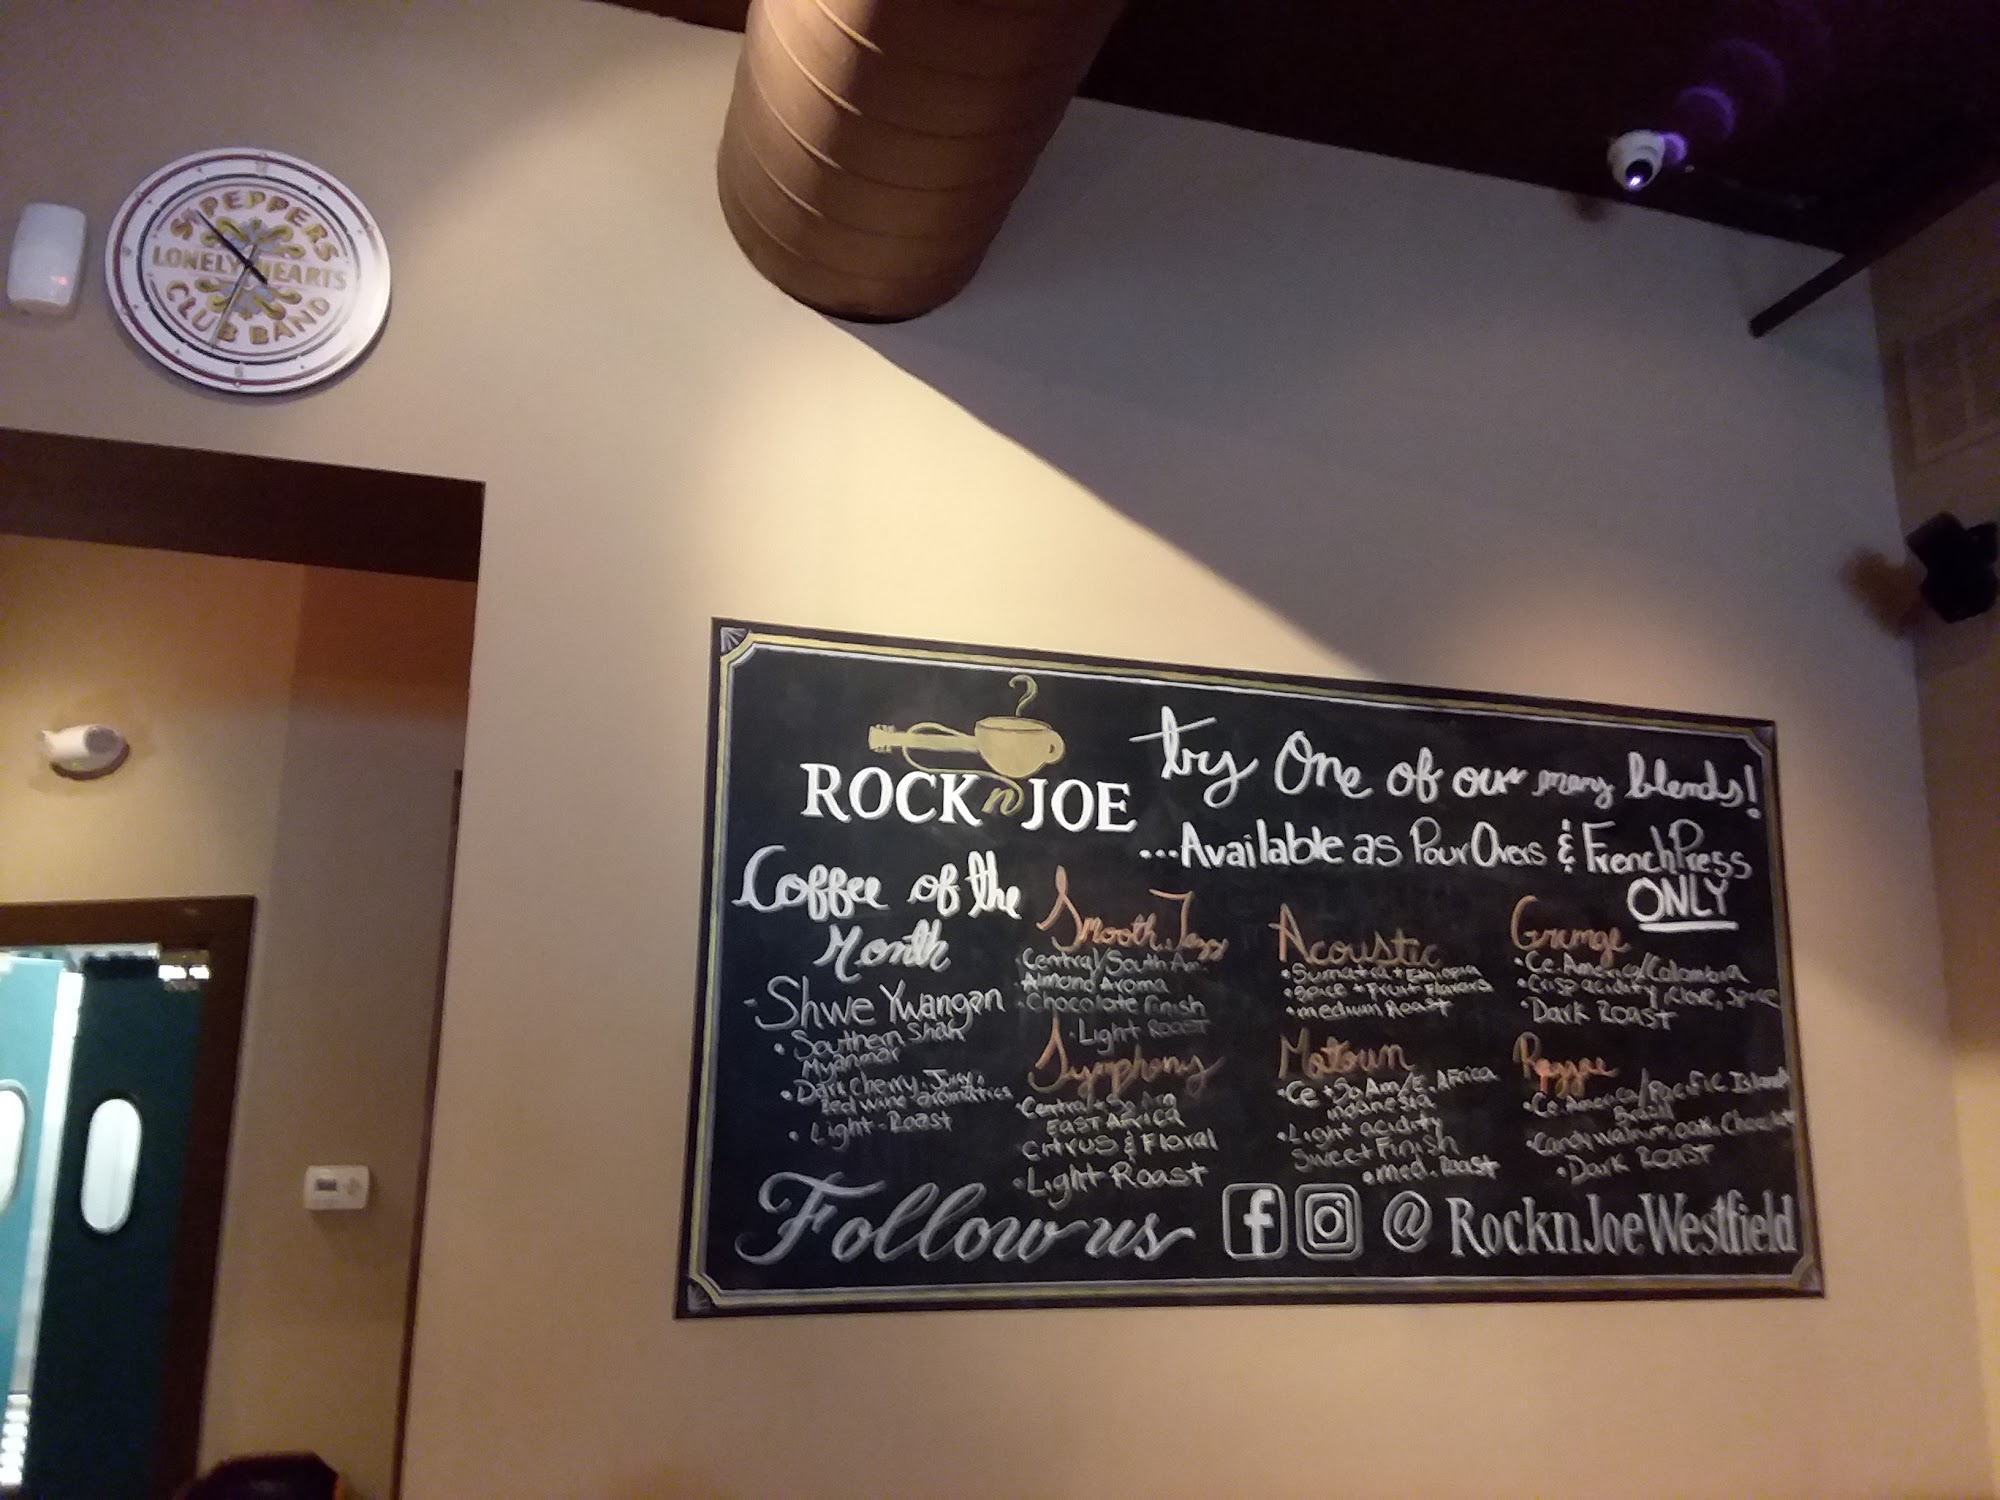 SGT PEPPERS
LONELY HEARTS
CLUB BAND
ROCK n JOE
Try One of our many blends!
...Available as Pour Overs & French Press
ONLY
Coffee of the
Month
- Shwe Ywangan
• Southern Shan
Myanmar
• Dark Cherry, Juicy,
Red wine aromatics
• Light-Roast
Smooth Jazz
Central/South Am.
Almond Aroma
• Chocolate Finish
• Light Roast
Symphony
• Central + So. Am
East Africa
Citrus & Floral
• Light Roast
Acoustic
• Sumatra + Ethiopia
• Spice + Fruit Flavors
• medium Roast
Motown
• Ce + So Am/E. Africa
Indonesia
• Light acidity
Sweet Finish
• med. Roast
Grunge
• Ce. America/Colombia
• Crisp acidity, clove, spice
• Dark Roast
Reggae
• Ce. America/Pacific Island
Brazil
• Candy walnut, oak, Chocolate
• Dark Roast
Follow us @RocknJoeWestfield